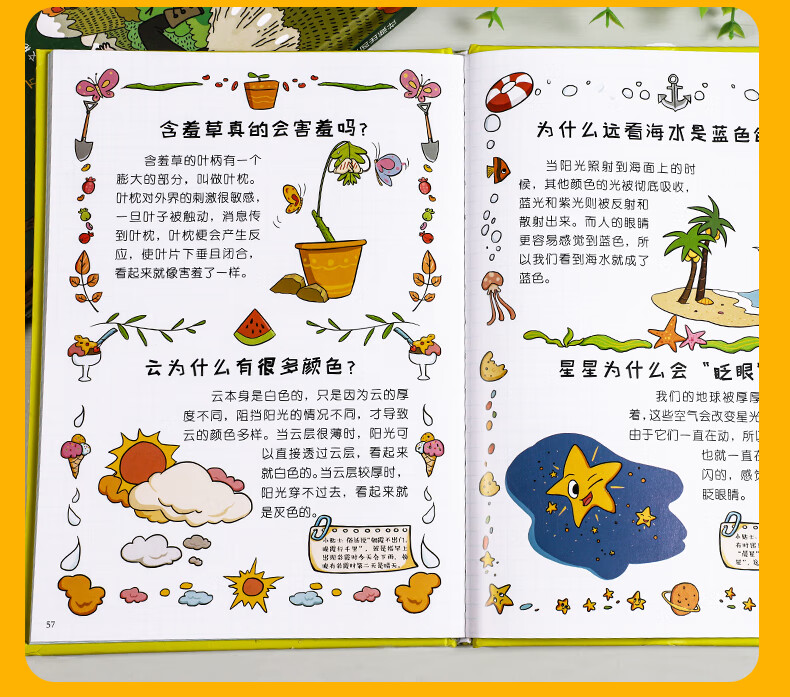 含羞草真的会害羞吗?
含羞草的叶柄有一个
膨大的部分，叫做叶枕。
叶枕对外界的刺激很敏感，
一旦叶子被触动，消息传
到叶枕，叶枕便会产生反
应，使叶片下垂且闭合，
看起来就像害羞了一样。
云为什么有很多颜色?
云本身是白色的，只是因为云的厚
度不同，阻挡阳光的情况不同，才导致
云的颜色多样。当云层很薄时，阳光可
以直接透过云层，看起来
就白色的。当云层较厚时，
阳光穿不过去，看起来就
是灰色的。
小贴士:俗话说“朝霞不出门，
晚霞行千里”，就是指早上
出现彩霞时今天会下雨，傍
晚有彩霞时第二天是晴天。
57
为什么远看海水是蓝色
当阳光照射到海面上的时
候，其他颜色的光被彻底吸收，
蓝光和紫光则被反射和
散射出来。而人的眼睛
更容易感觉到蓝色，所
以我们看到海水就成了
蓝色。
星星为什么会“眨眼”
我们的地球被厚厚
着，这些空气会改变星光
由于它们一直在动，所以
也就一直在
闪的，感觉
眨眼睛。
小贴士:
有时
“晨星”
星”，